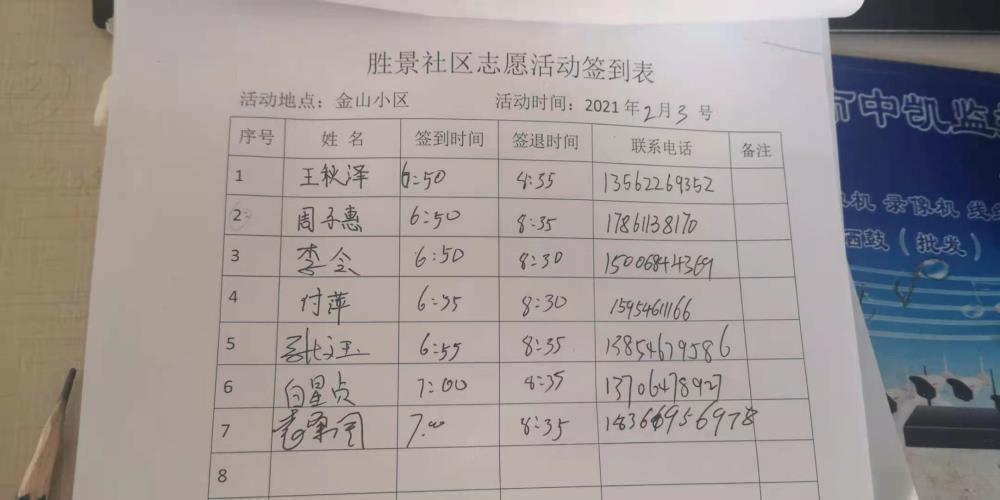 胜景社区志愿活动签到表
活动地点：金山小区 活动时间：2021年2月3号
序号 姓名 签到时间 签退时间 联系电话 备注
1 王秋泽 6:50 4:35 13562269352
2 周子惠 6:50 8:35 17861138170
3 李会 6:50 8:30 15006844369
4 付萍 6:55 8:30 15954611166
5 6:55 8:35 13854679586
6 白星贞 7:00 8:35 13706478927
7 7:00 8:35 18366956978
8
中凯监
机 录像机 线
硒鼓（批发）